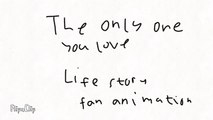 The only one
you love
Life story
fan animation
FlipaClip